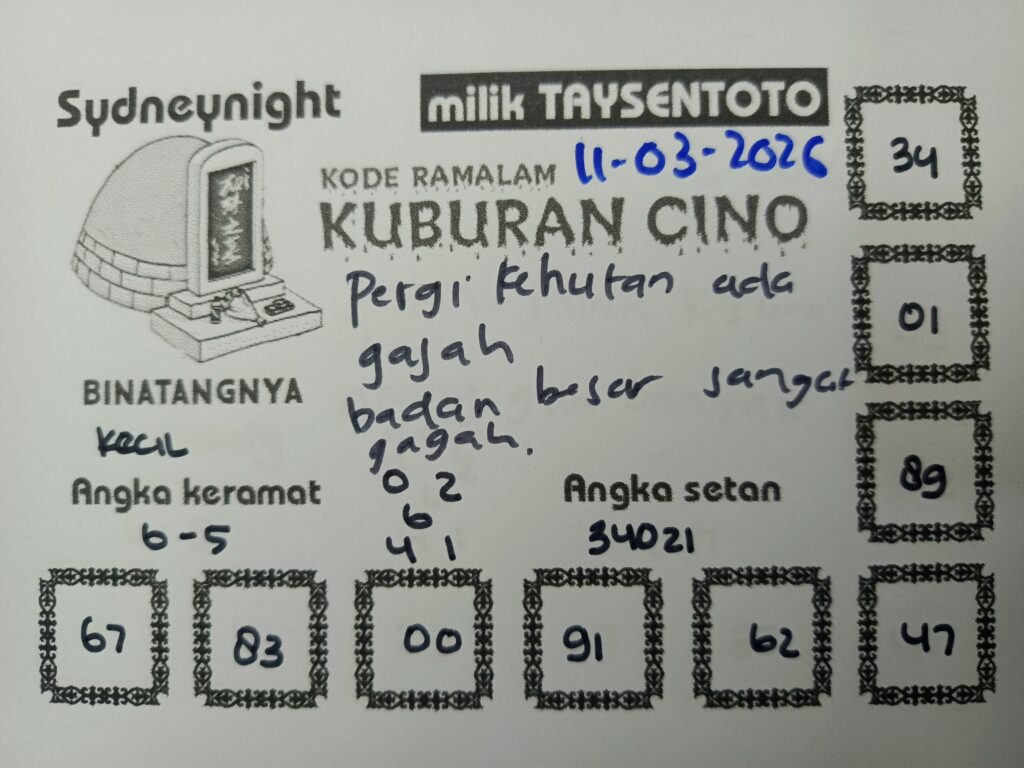 Sydneynight
milik TAYSENTOTO
KODE RAMALAM 11-03-2026
KUBURAN CINO
Pergi kehutan ada
gajah
badan besar sangat
gagah.
BINATANGNYA
KECIL
Angka keramat
6-5
0 2
6
4 1
Angka setan
34021
34
01
89
67 83 00 91 62 47